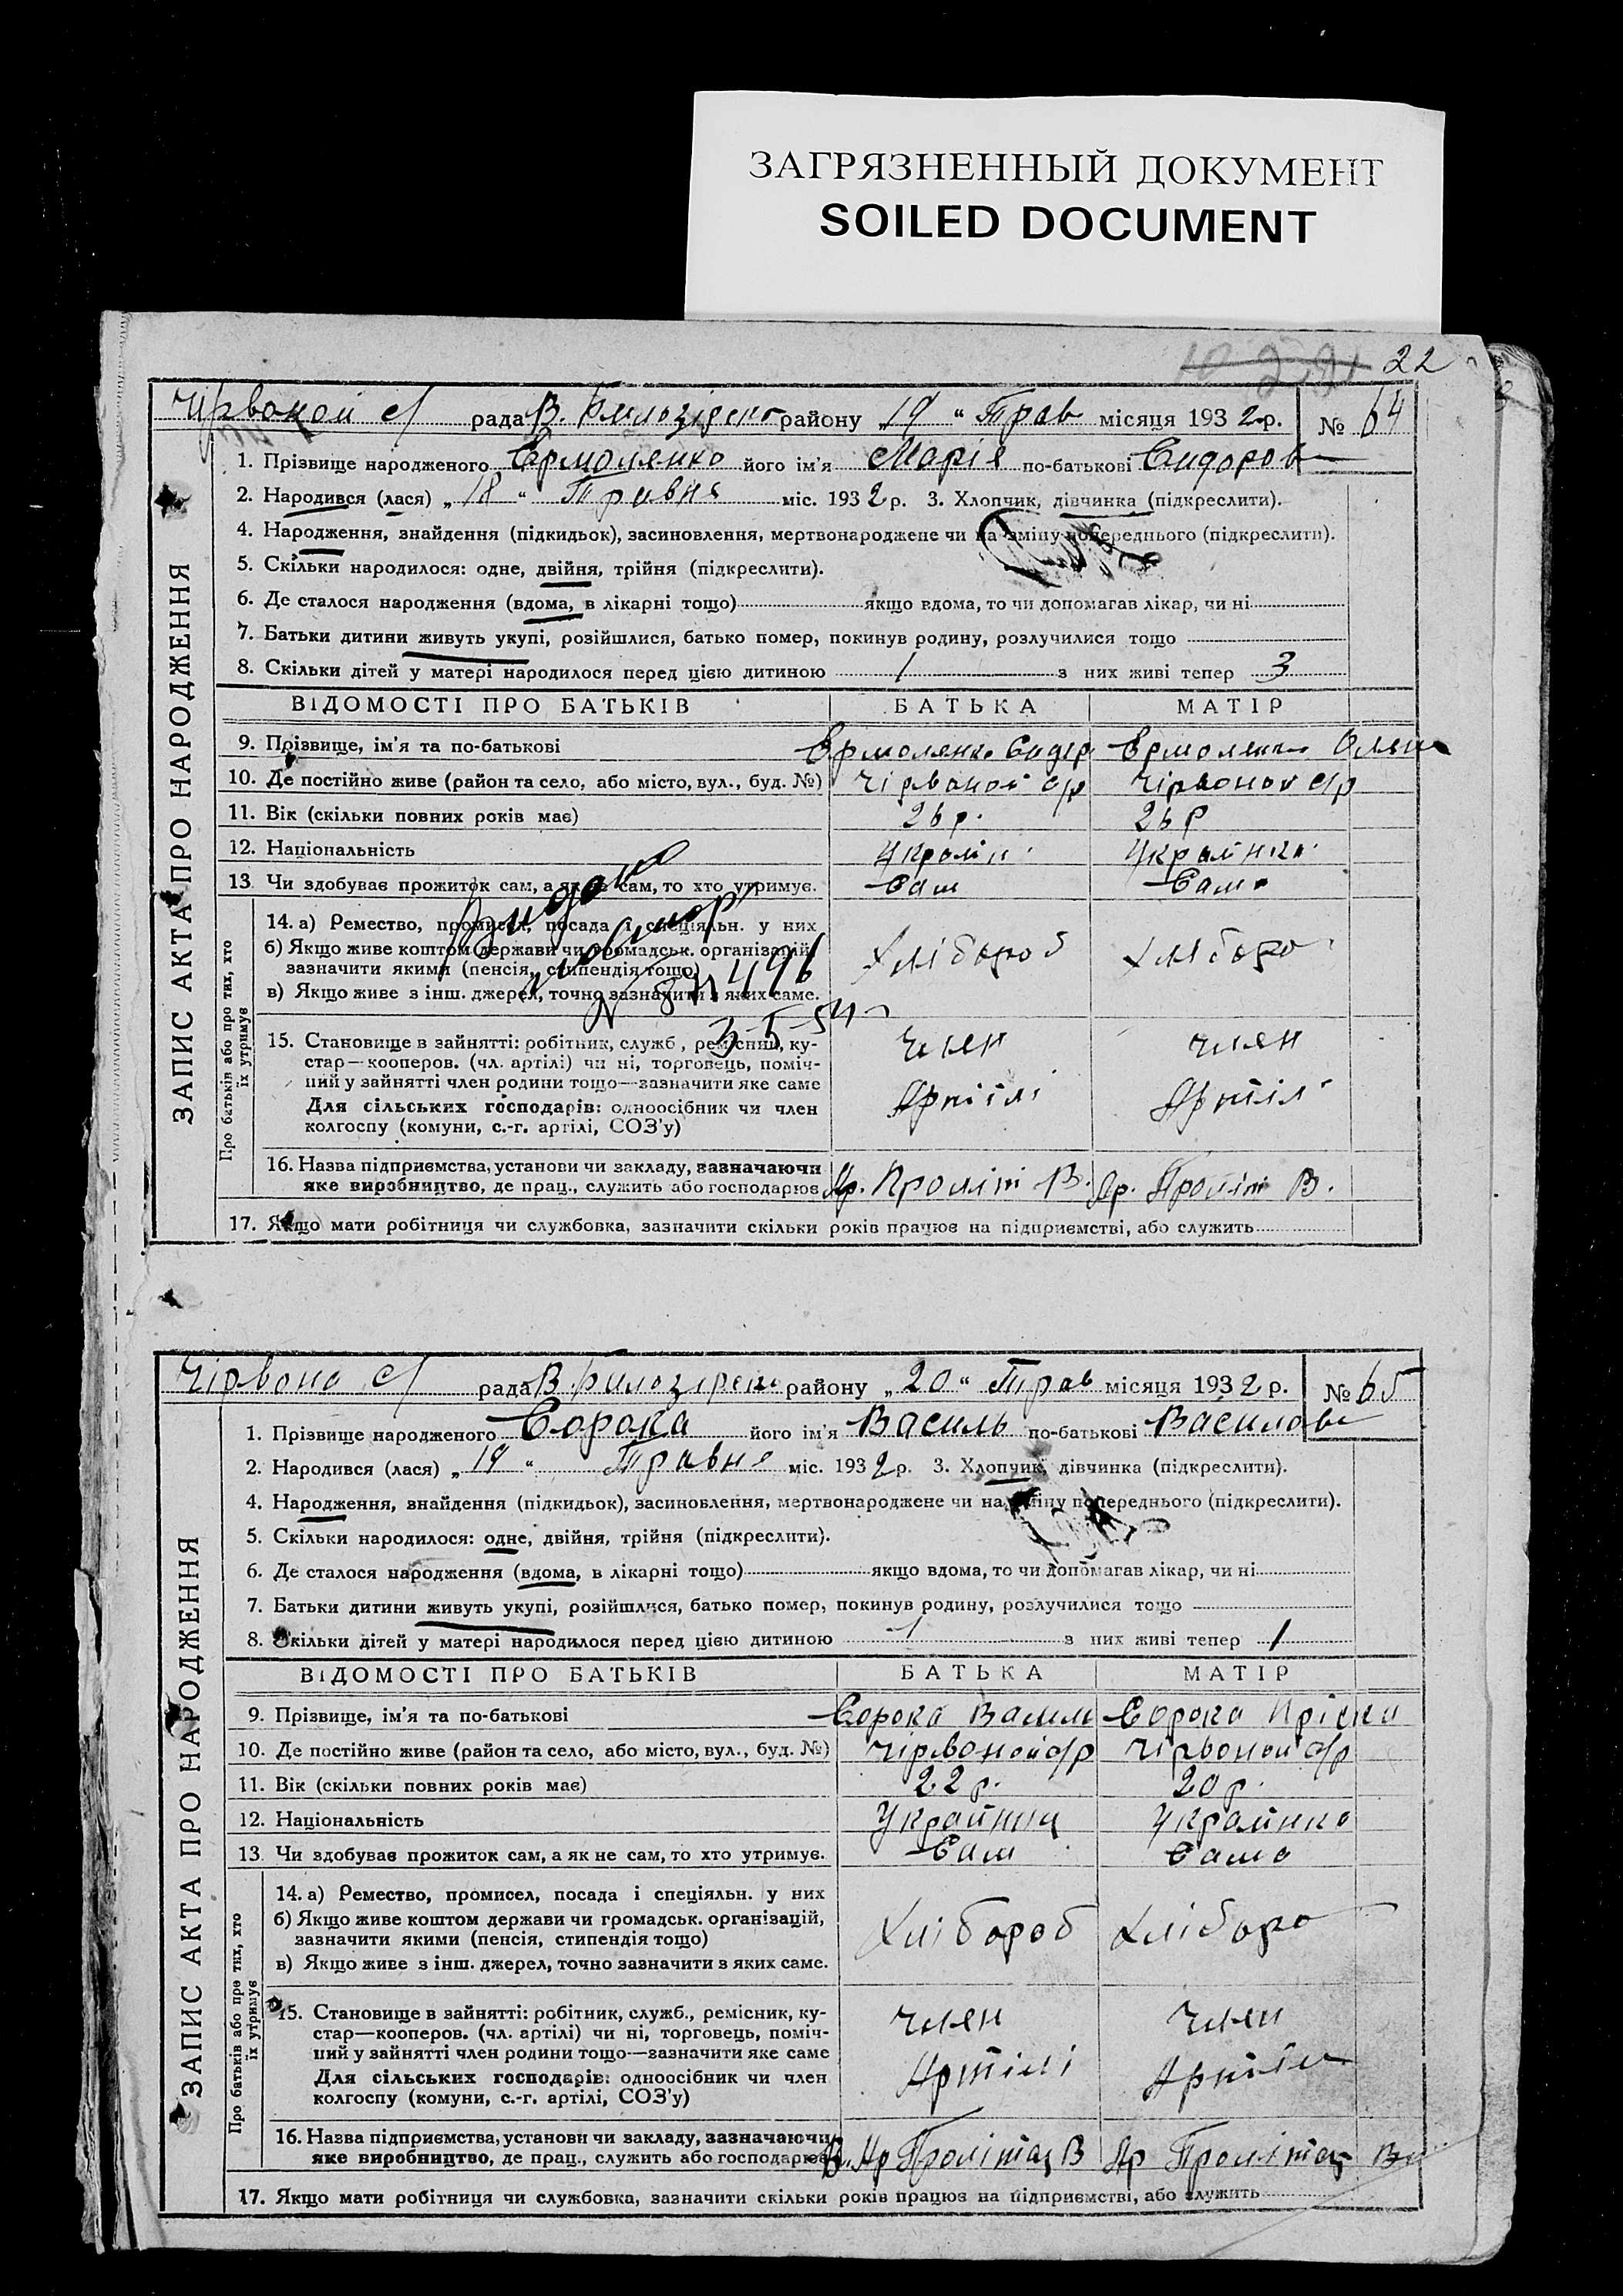 ЗАГРЯЗНЕННЫЙ ДОКУМЕНТ
SOILED DOCUMENT
22
Чірвоной с/ рада В. Билозірско району „19“ Трав місяця 1932 р. № 64
ЗАПИС АКТА ПРО НАРОДЖЕННЯ
1. Прізвище народженого Єрмоленко його ім'я Марія по-батькові Сидоров
2. Народився (лася) „18“ Травня міс. 1932 р. 3. Хлопчик, дівчинка (підкреслити).
4. Народження, знайдення (підкидьок), засиновлення, мертвонароджене чи на зміну попереднього (підкреслити).
5. Скільки народилося: одне, двійня, трійня (підкреслити).
6. Де сталося народження (вдома, в лікарні тощо) якщо вдома, то чи допомагав лікар, чи ні
7. Батьки дитини живуть укупі, розійшлися, батько помер, покинув родину, розлучилися тощо
8. Скільки дітей у матері народилося перед цією дитиною 1 з них живі тепер 3
ВІДОМОСТІ ПРО БАТЬКІВ БАТЬКА МАТІР
9. Прізвище, ім'я та по-батькові Єрмоленко Сидер Єрмоленко
10. Де постійно живе (район та село, або місто, вул., буд. №) Чірвоной с/р Чірвоной с/р
11. Вік (скільки повних років має) 26 р. 26 р
12. Національність Україн Українка
13. Чи здобуває прожиток сам, а як не сам, то хто утримує. Сам Сама
Про батьків або про тих, хто їх утримує
14. а) Ремество, промисел, посада і спеціяльн. у них
б) Якщо живе коштом держави чи громадськ. організацій, Хлібороб Хліборо
зазначити якими (пенсія, стипендія тощо)
в) Якщо живе з інш. джерел, точно зазначити з яких саме.
15. Становище в зайнятті: робітник, служб., ремісник, ку- Член Член
стар—кооперов. (чл. артілі) чи ні, торговець, поміч-
ний у зайнятті член родини тощо—зазначити яке саме Артілі Артілі
Для сільських господарів: одноосібник чи член
колгоспу (комуни, с.-г. артілі, СОЗ'у)
16. Назва підприємства, установи чи закладу, зазначаючи
яке виробництво, де прац., служить або господарює Ар. Проліт В. Ар. Проліт В.
17. Якщо мати робітниця чи службовка, зазначити скільки років працює на підприємстві, або служить
Чірвоно с/ рада В. Билозірско району „20“ Трав місяця 1932 р. № 65
ЗАПИС АКТА ПРО НАРОДЖЕННЯ
1. Прізвище народженого Сорока його ім'я Василь по-батькові Василов
2. Народився (лася) „19“ Травня міс. 1932 р. 3. Хлопчик, дівчинка (підкреслити).
4. Народження, внайдення (підкидьок), засиновлення, мертвонароджене чи на зміну попереднього (підкреслити).
5. Скільки народилося: одне, двійня, трійня (підкреслити).
6. Де сталося народження (вдома, в лікарні тощо) якщо вдома, то чи допомагав лікар, чи ні
7. Батьки дитини живуть укупі, розійшлися, батько помер, покинув родину, розлучилися тощо
8. Скільки дітей у матері народилося перед цією дитиною 1 з них живі тепер 1
ВІДОМОСТІ ПРО БАТЬКІВ БАТЬКА МАТІР
9. Прізвище, ім'я та по-батькові Сорока Сорока Пріська
10. Де постійно живе (район та село, або місто, вул., буд. №) Чірвоной с/р Чірвоной с/р
11. Вік (скільки повних років має) 22 р. 20 р.
12. Національність Українка
13. Чи здобуває прожиток сам, а як не сам, то хто утримує. Сам Сама
Про батьків або про тих, хто їх утримує
14. а) Ремество, промисел, посада і спеціяльн. у них
б) Якщо живе коштом держави чи громадськ. організацій, Хлібороб Хліборо
зазначити якими (пенсія, стипендія тощо)
в) Якщо живе з інш. джерел, точно зазначити з яких саме.
15. Становище в зайнятті: робітник, служб., ремісник, ку- Член Член
стар—кооперов. (чл. артілі) чи ні, торговець, поміч-
ний у зайнятті член родини тощо—зазначити яке саме Артілі Артілі
Для сільських господарів: одноосібник чи член
колгоспу (комуни, с.-г. артілі, СОЗ'у)
16. Назва підприємства, установи чи закладу, зазначаючи
яке виробництво, де прац., служить або господарює Ар Пролітар В Ар Пролітар
17. Якщо мати робітниця чи службовка, зазначити скільки років працює на підприємстві, або служить